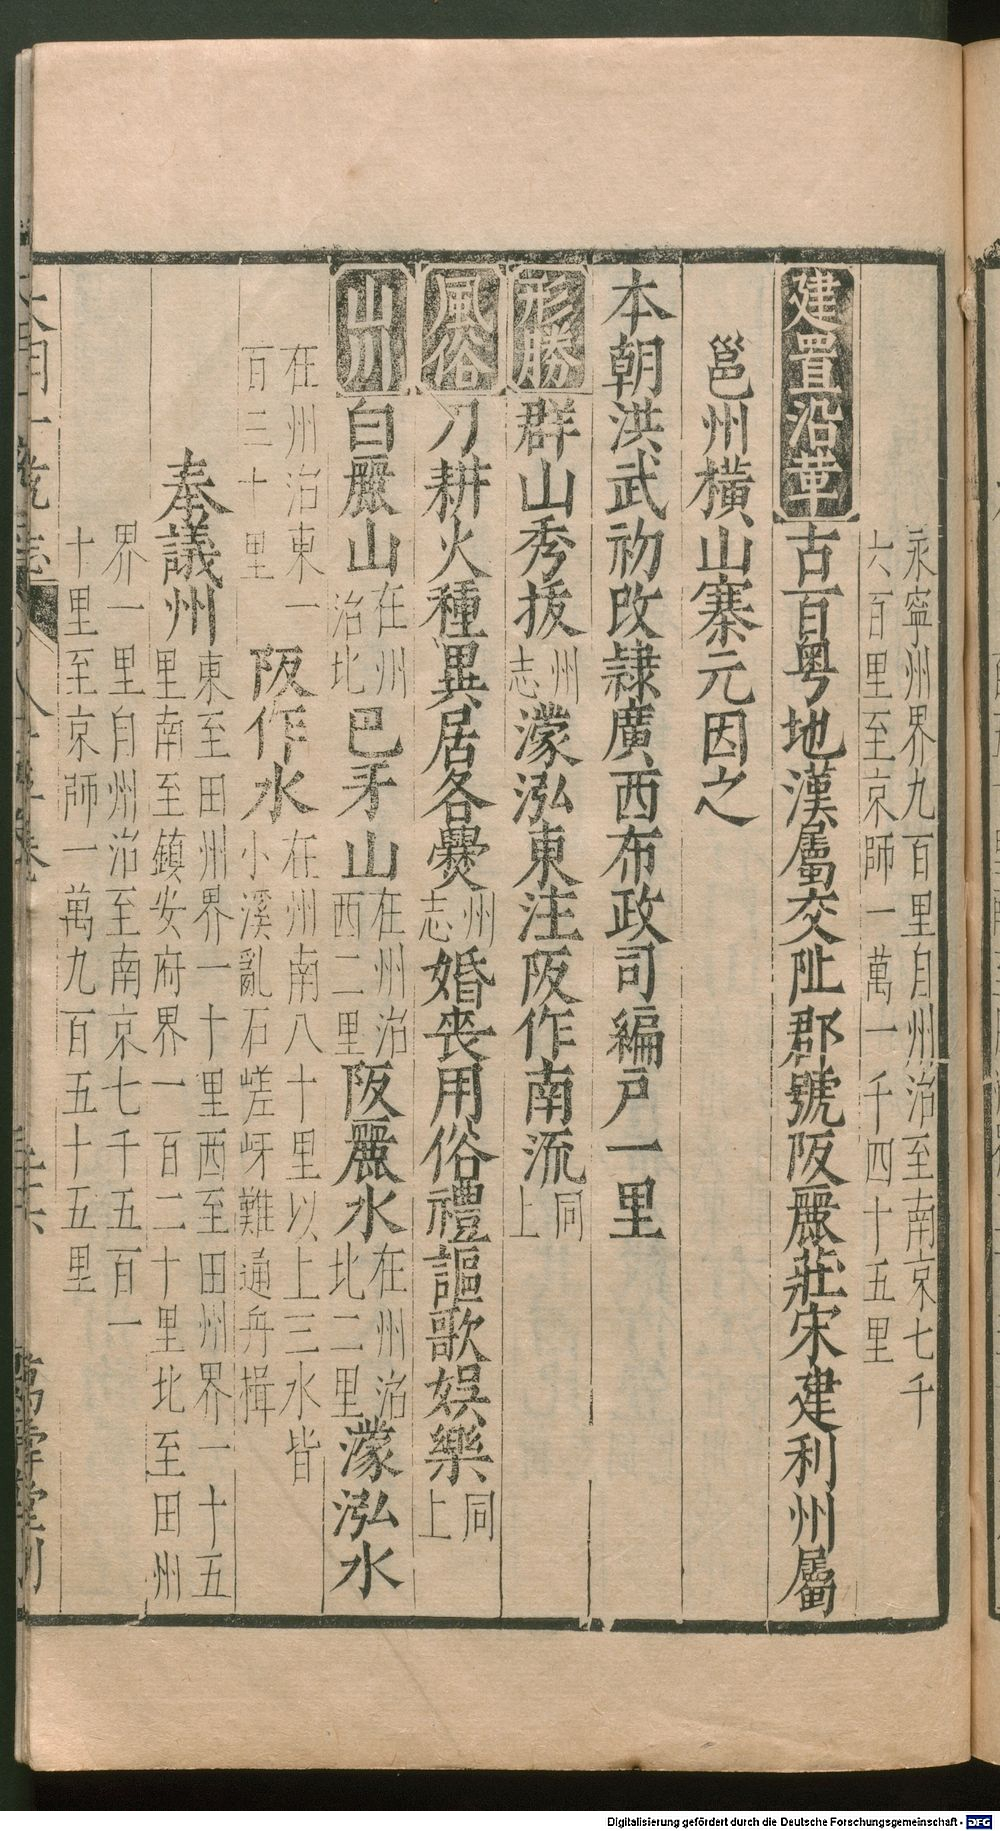 永寧州界九百里自州治至南京七千
六百里至京師一萬一千四十五里
建置沿革古百粵地漢屬交阯郡號阪麗莊宋建利州屬
邕州橫山寨元因之
本朝洪武初改隷廣西布政司編戶一里
形勝群山秀拔州志濛泓東注阪作南流同上
風俗刀耕火種異居各爨州志婚喪用俗禮謳歌娛樂同上
山川白麗山在州治北巴矛山在州治西二里阪麗水在州治北二里濛泓水
在州治東一百三十里阪作水在州南八十里以上三水皆小溪亂石嵯岈難通舟揖
奉議州東至田州界一十里西至田州界一十五里南至鎮安府界一百二十里北至田州
界一里自州治至南京七千五百一
十里至京師一萬九百五十五里
大明一統志
萬壽堂刊
Digitalisierung gefördert durch die Deutsche Forschungsgemeinschaft - DFG